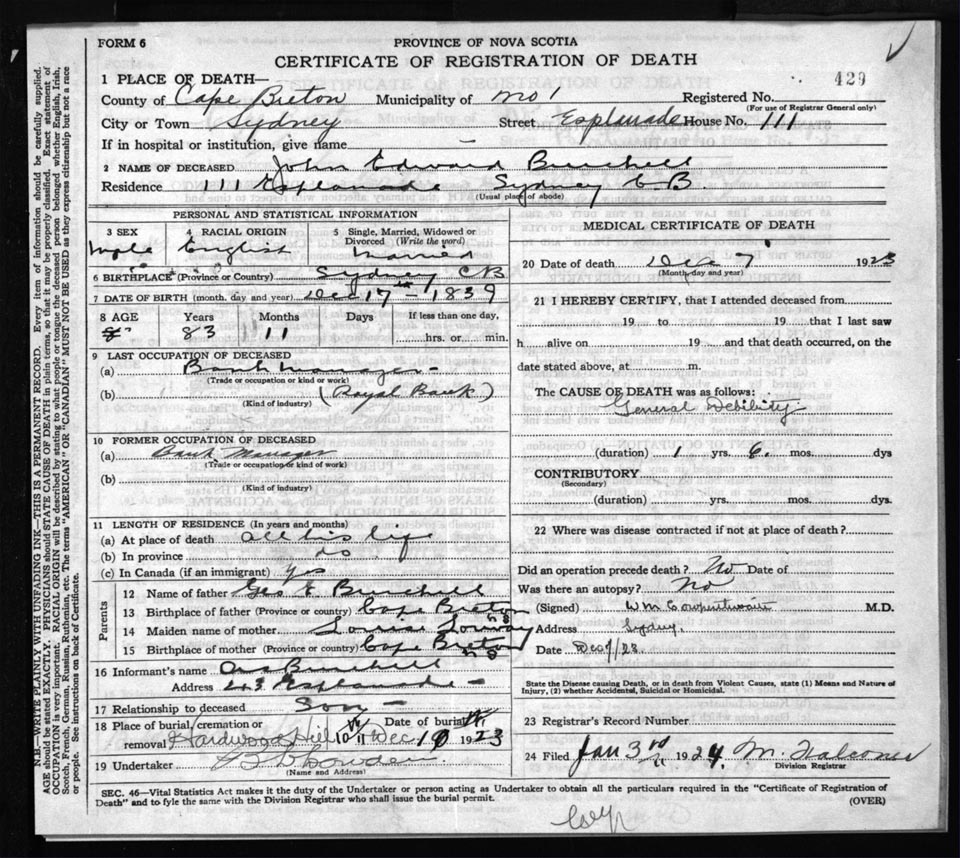 FORM 6
PROVINCE OF NOVA SCOTIA
CERTIFICATE OF REGISTRATION OF DEATH
429
1 PLACE OF DEATH—
County of Cape Breton Municipality of Registered No.
(For use of Registrar General only)
City or Town Sydney Street Esplanade House No. 111
If in hospital or institution, give name —
2 NAME OF DECEASED John Edward Burchell
Residence 111 Esplanade Sydney C.B.
(Usual place of abode)
PERSONAL AND STATISTICAL INFORMATION
3 SEX 4 RACIAL ORIGIN 5 Single, Married, Widowed or Divorced (Write the word)
Male English Married
6 BIRTHPLACE (Province or Country) Sydney CB
7 DATE OF BIRTH (month, day and year) Dec 17th – 1839
8 AGE Years Months Days If less than one day,
83 11 hrs. or min.
9 LAST OCCUPATION OF DECEASED
(a) Bank Manager –
(Trade or occupation or kind or work)
(b) (Royal Bank)
(Kind of industry)
10 FORMER OCCUPATION OF DECEASED
(a) Bank Manager
(Trade or occupation or kind of work)
(b)
(Kind of industry)
11 LENGTH OF RESIDENCE (In years and months)
(a) At place of death all his life
(b) In province do
(c) In Canada (if an immigrant) yes
Parents
12 Name of father Geo. E Burchell
13 Birthplace of father (Province or country) Cape Breton NS
14 Maiden name of mother Louisa Lorway
15 Birthplace of mother (Province or country) Cape Breton NS
16 Informant's name Burchell
Address 243 Esplanade –
17 Relationship to deceased Son –
18 Place of burial, cremation or removal Hardwood Hill Date of burial Dec 10 1923
19 Undertaker
(Name and Address)
MEDICAL CERTIFICATE OF DEATH
20 Date of death Dec 7 1923
(Month, day and year)
21 I HEREBY CERTIFY, that I attended deceased from
19 to 19 that I last saw
h alive on 19 and that death occurred, on the
date stated above, at m.
The CAUSE OF DEATH was as follows:
General Debility
(duration) 1 yrs. 6. mos. dys
CONTRIBUTORY
(Secondary)
(duration) yrs. mos. dys.
22 Where was disease contracted if not at place of death?
Did an operation precede death? No Date of
Was there an autopsy? No
(Signed) M.D.
Address Sydney.
Date Dec 9/23.
State the Disease causing Death, or in death from Violent Causes, state (1) Means and Nature of
Injury, (2) whether Accidental, Suicidal or Homicidal.
23 Registrar's Record Number
24 Filed Jan 3rd 1924. M. Falconer
Division Registrar
SEC. 46—Vital Statistics Act makes it the duty of the Undertaker or person acting as Undertaker to obtain all the particulars required in the "Certificate of Registration of
Death" and to fyle the same with the Division Registrar who shall issue the burial permit.
(OVER)
N.B.—WRITE PLAINLY WITH UNFADING INK—THIS IS A PERMANENT RECORD. Every item of information should be carefully supplied.
AGE should be stated EXACTLY. PHYSICIANS should STATE CAUSE OF DEATH in plain terms, so that it may be properly classified. Exact statement of
OCCUPATION is very important. RACIAL ORIGIN will be described by stating to what people or tongue the deceased person belonged whether English, Irish,
Scotch, French, German, Russian, Ruthenian, etc. The terms "AMERICAN" OR "CANADIAN" MUST NOT BE USED as they express citizenship but not a race
or people. See instructions on back of Certificate.